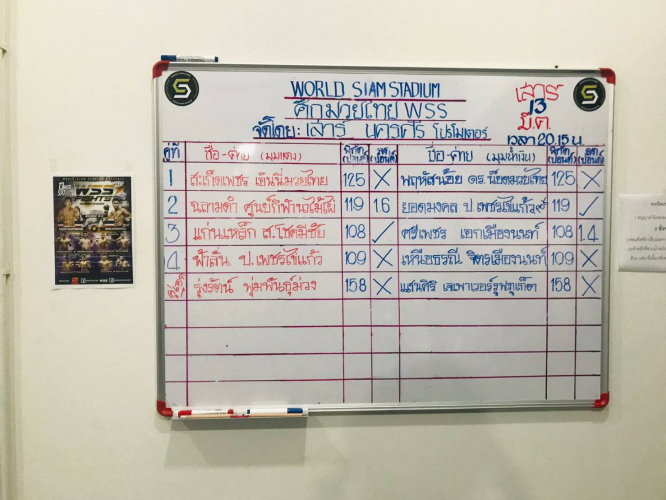 WORLD SIAM STADIUM
ศึกมวยไทย WSS
จัดโดย : เสาร์ นครศรี โปรโมเตอร์
เสาร์
13
มี.ค.
เวลา 20.15 น.
คู่ที่ ชื่อ-ค่าย (มุมแดง) พิกัด (ปอนด์) ลด (ปอนด์) ชื่อ-ค่าย (มุมน้ำเงิน) พิกัด (ปอนด์) ลด (ปอนด์)
1 สะเก็ดเพชร เอ็นนี่มวยไทย 125 X พฤหัสน้อย ดร.น็อตมวยไทย 125 X
2 ฉลามดำ ศูนย์กีฬานาไม้ไผ่ 119 1.6 ยอดมงคล ป.เพชรไข่แก้ว 119 ✓
3 แก่นเหล็ก ส.โชคมีชัย 108 ✓ ศรีเพชร เอกเมืองนนท์ 108 1.4
4 ฟ้าลั่น ป.เพชรไข่แก้ว 109 X เหนืออธรณี จิตรเมืองนนท์ 109 X
รุ่งรัตน์ พุ่มพันธุ์ม่วง 158 X แสนศิริ เจเพาเวอร์รูฟภูเก็ต 158 X
WSS
FIGHTS